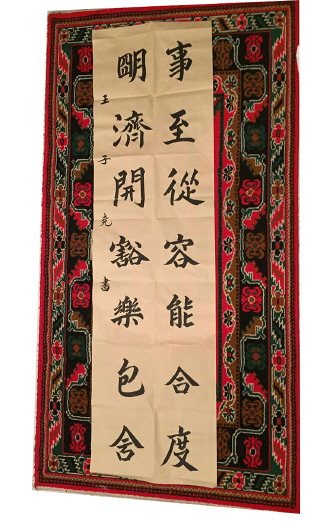 事至從容能合度
朙濟開豁樂包含
王子尭書